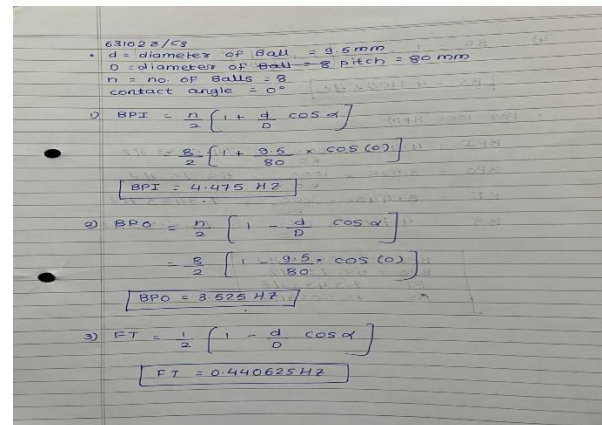 631022/C3
• d = diameter of Ball = 9.5mm
D = diameter of pitch = 80 mm
n = no. of Balls = 8
contact angle = 0°
1) BPI = n/2 [1 + d/D cos α]
= 8/2 [1 + 9.5/80 × cos (0)]
BPI = 4.475 HZ
2) BPO = n/2 [1 - d/D cos α]
= 8/2 [1 - 9.5/80 × cos (0)]
BPO = 3.525 HZ
3) FT = 1/2 [1 - d/D cos α]
FT = 0.440625HZ